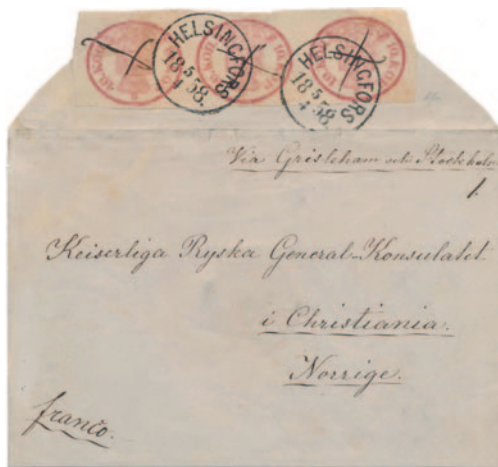 10.KOP. 10.KOP.
HELSINGFORS
18 5/4 58.
HELSINGFORS
18 5/4 58.
Via Grisleham och Stockholm
1.
Keiserliga Ryska General-Konsulatet
i Christiania.
Norrige.
franco.